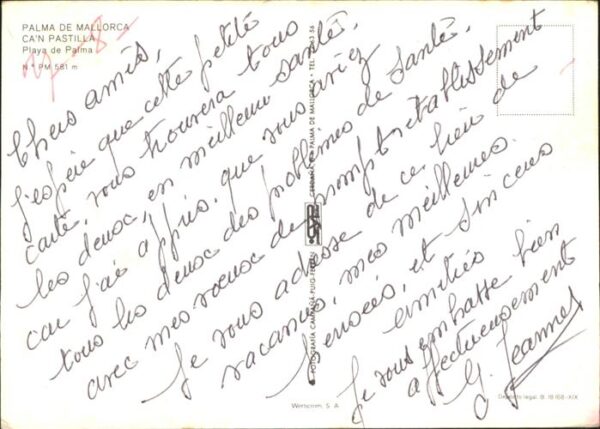 PALMA DE MALLORCA
CA'N PASTILLA
Playa de Palma
N.º PM 581 m
Chers amis,
J'espère que cette petite
carte, vous trouvera tous
les deux, en meilleure santé,
car j'ai appris, que vous aviez
tous les deux des problèmes de santé.
avec mes voeux de prompt rétablissement
Je vous adresse de ce lieu de
vacances, mes meilleures
pensées, et sincères
amitiés
Je vous embrasse bien
affectueusement
G. Jeannet
FOTOGRAFÍA CAMPAÑÁ-PUIG-FERRÁN
PALMA DE MALLORCA • TEL.
Wertscrom, S. A.
Depósito legal. B. 18168-XIX